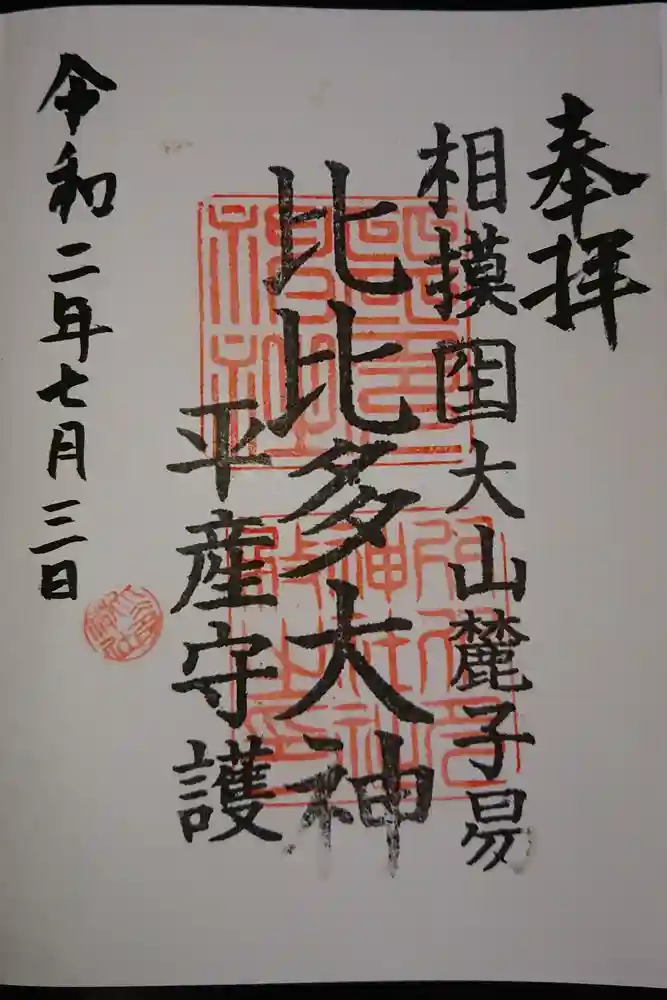 奉拝
相摸国大山麓子易
比比多大神
平産守護
令和二年七月三日